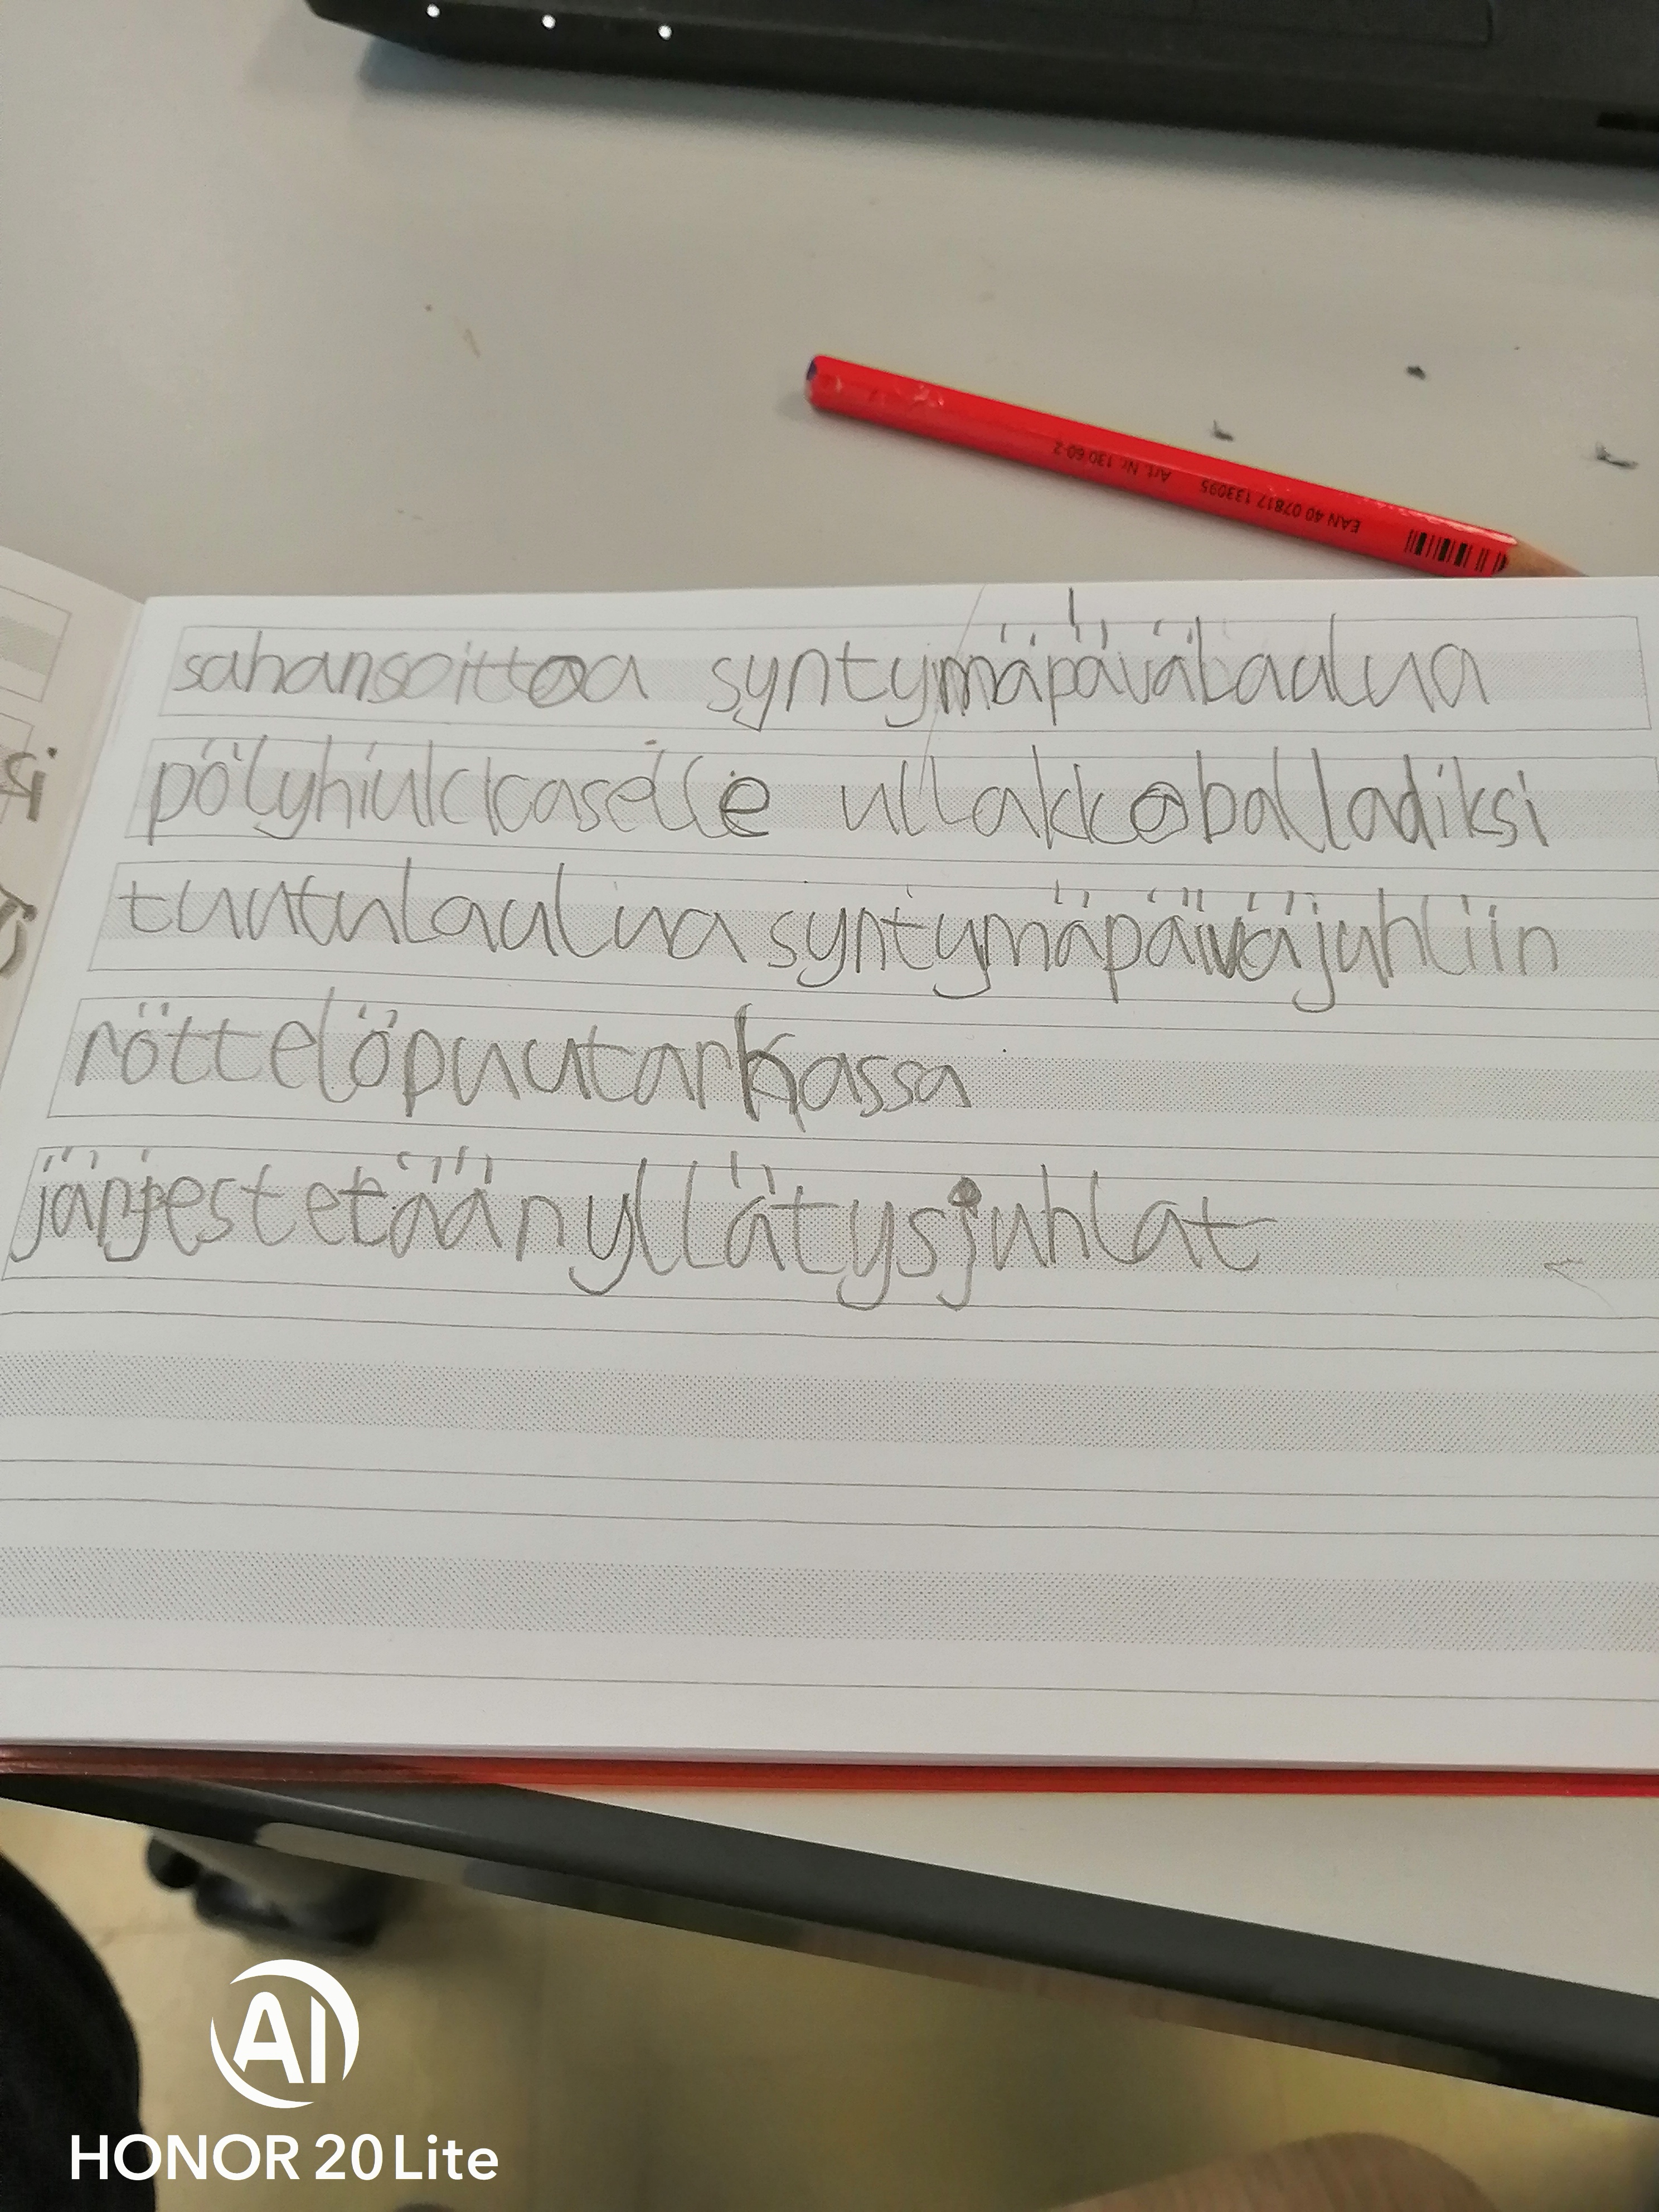 Art. Nr. 130 60-2
EAN 40 07817 133095
sahansoittoa syntymäpävälaalua
pölyhiukkkaselle ullakkoballadiksi
tuutulaulua syntymäpäiväjuhliin
röttelöpuutarhassa
järjestetään yllätysjuhlat
si
AI
HONOR 20 Lite